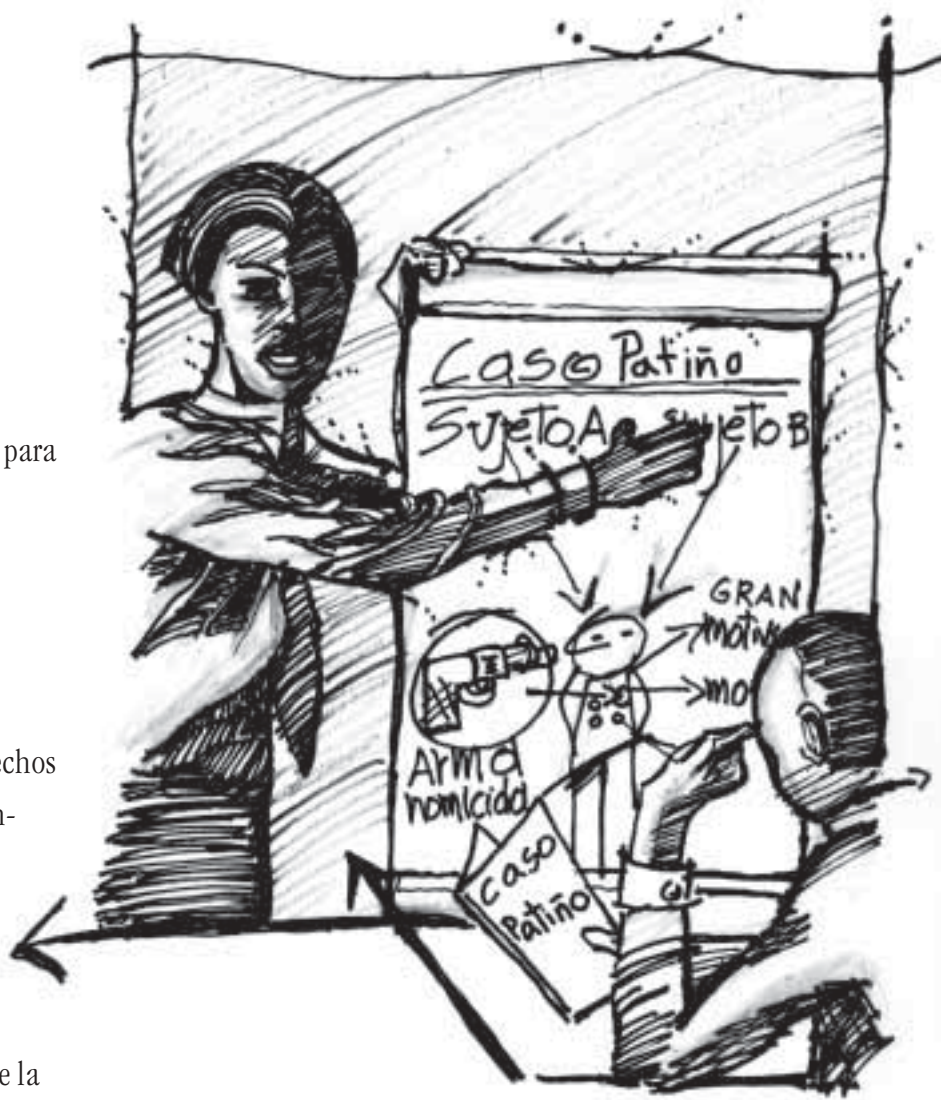 para
echos
n-
e la
Caso Patiño
Sujeto A Sujeto B
GRAN
motivo
mo
Arma
homicida
Caso
Patiño